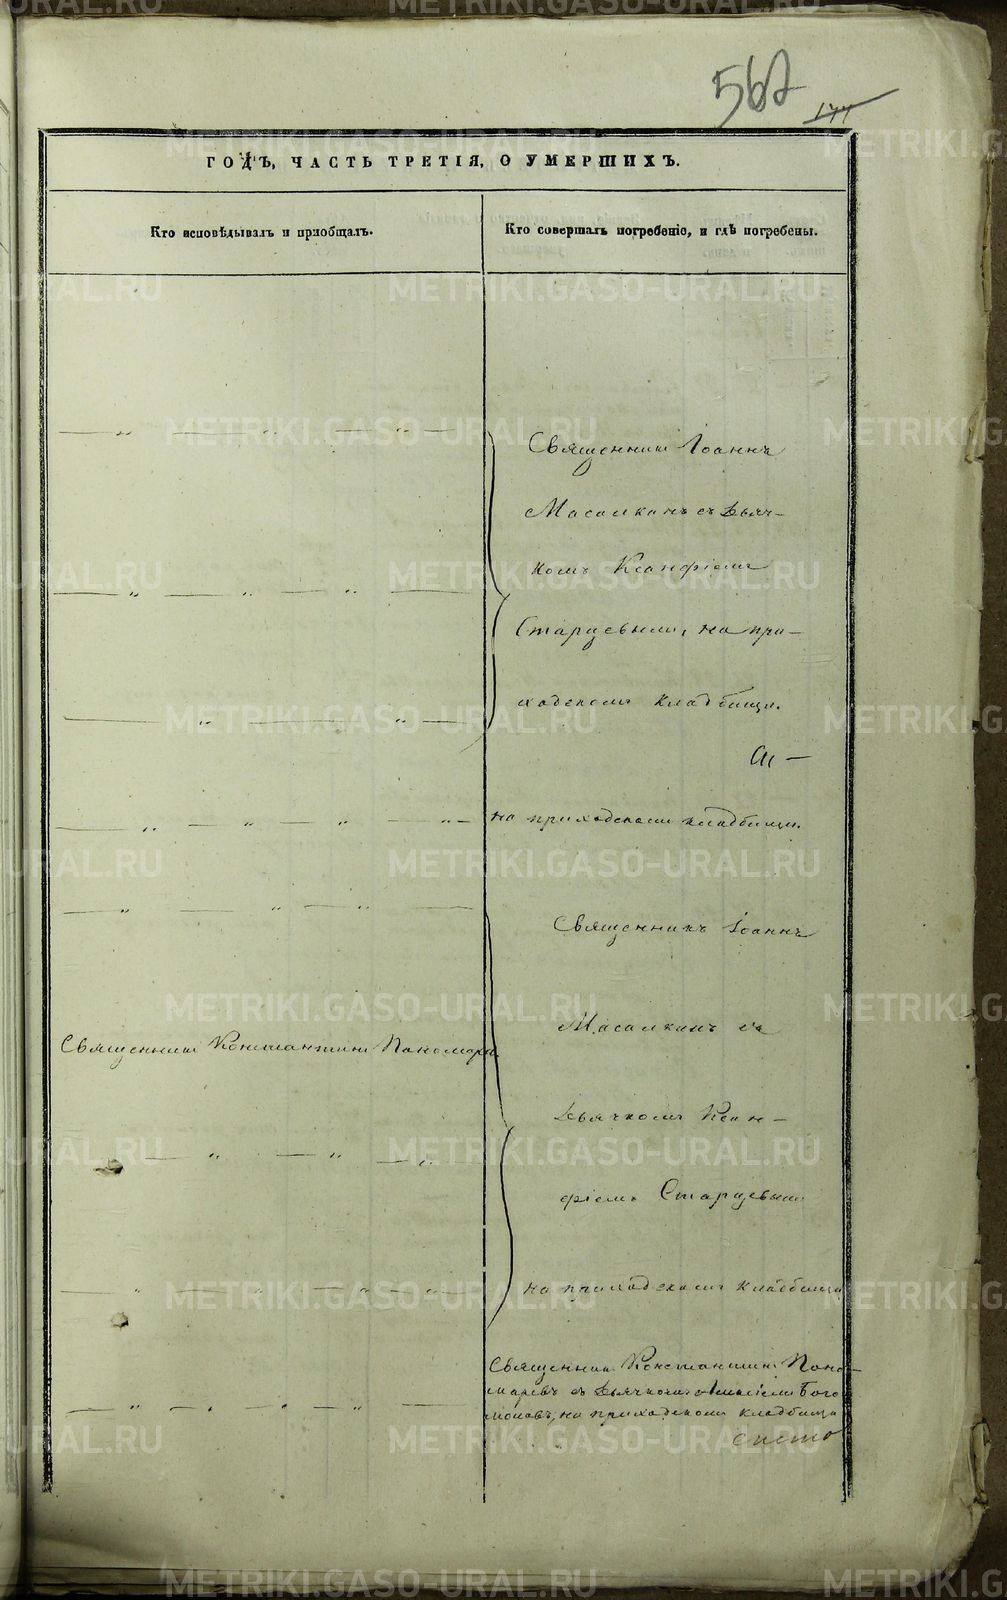 562
ГОДЪ, ЧАСТЬ ТРЕТІЯ, О УМЕРШИХЪ.
Кто исповѣдывалъ и пріобщалъ.
Кто совершалъ погребеніе, и гдѣ погребены.
Священникъ Іоаннъ
Масалкинъ съ дьяч-
комъ Ксанфіемъ
Старцевымъ, на при-
ходскомъ кладбищѣ.
на приходскомъ кладбищѣ.
Священникъ Іоаннъ
Масалкинъ съ
Священникъ Константинъ Пономаревъ
дьячкомъ Ксан-
фіемъ Старцевымъ
на приходскомъ кладбищѣ
Священникъ Константинъ Поно-
маревъ съ дьячкомъ
на приходскомъ кладбищѣ
METRIKI.GASO-URAL.RU